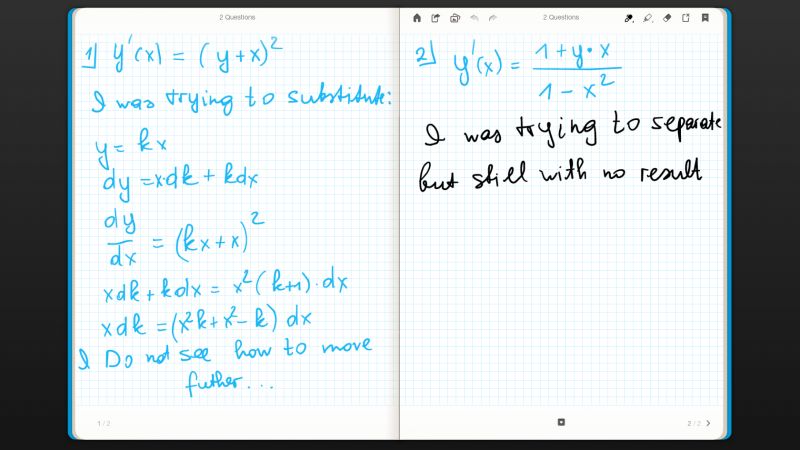 2 Questions
1) y'(x) = (y+x)²
I was trying to substitute:
y = kx
dy = x·dk + kdx
dy/dx = (kx+x)²
xdk + kdx = x²(k+1)·dx
xdk = (x²k+x²-k) dx
I Do not see how to move
futher...
1 / 2
2 Questions
2) y'(x) = (1+y·x)/(1-x²)
I was trying to separate
but still with no result
2 / 2